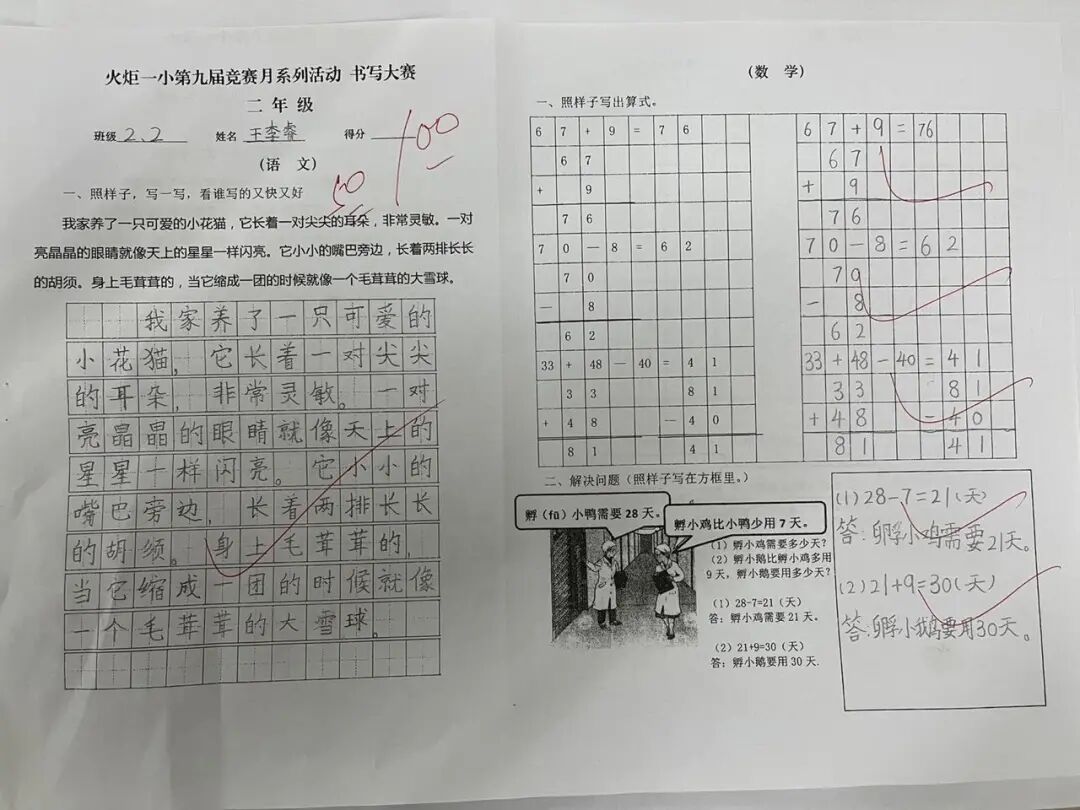 火炬一小第九届竞赛月系列活动 书写大赛
二 年 级
班级 2.2 姓名 王李睿 得分 100
（语 文）
50
一、照样子，写一写，看谁写的又快又好
我家养了一只可爱的小花猫，它长着一对尖尖的耳朵，非常灵敏。一对
亮晶晶的眼睛就像天上的星星一样闪亮。它小小的嘴巴旁边，长着两排长长
的胡须。身上毛茸茸的，当它缩成一团的时候就像一个毛茸茸的大雪球。
我家养了一只可爱的
小花猫，它长着一对尖尖
的耳朵，非常灵敏。一对
亮晶晶的眼睛就像天上的
星星一样闪亮。它小小的
嘴巴旁边，长着两排长长
的胡须。身上毛茸茸的，
当它缩成一团的时候就像
一个毛茸茸的大雪球。
（数 学）
一、照样子写出算式。
67+9=76
67
+ 9
76
70—8=62
70
— 8
62
33+48—40=41
33 81
+48 —40
81 41
67+9=76
67
+ 9
76
70-8=62
79
- 8
62
33+48-40=41
33 81
+48 -40
81 41
二、解决问题（照样子写在方框里。）
孵（fū）小鸭需要 28 天。
孵小鸡比小鸭少用 7 天。
（1）孵小鸡需要多少天?
（2）孵小鹅比孵小鸡多用
9 天，孵小鹅要用多少天?
（1）28-7=21（天）
答：孵小鸡需要 21 天。
（2）21+9=30（天）
答：孵小鹅要用 30 天.
(1) 28-7=21(天)
答：孵小鸡需要21天。
(2) 21+9=30(天)
答：孵小鹅要用30天。